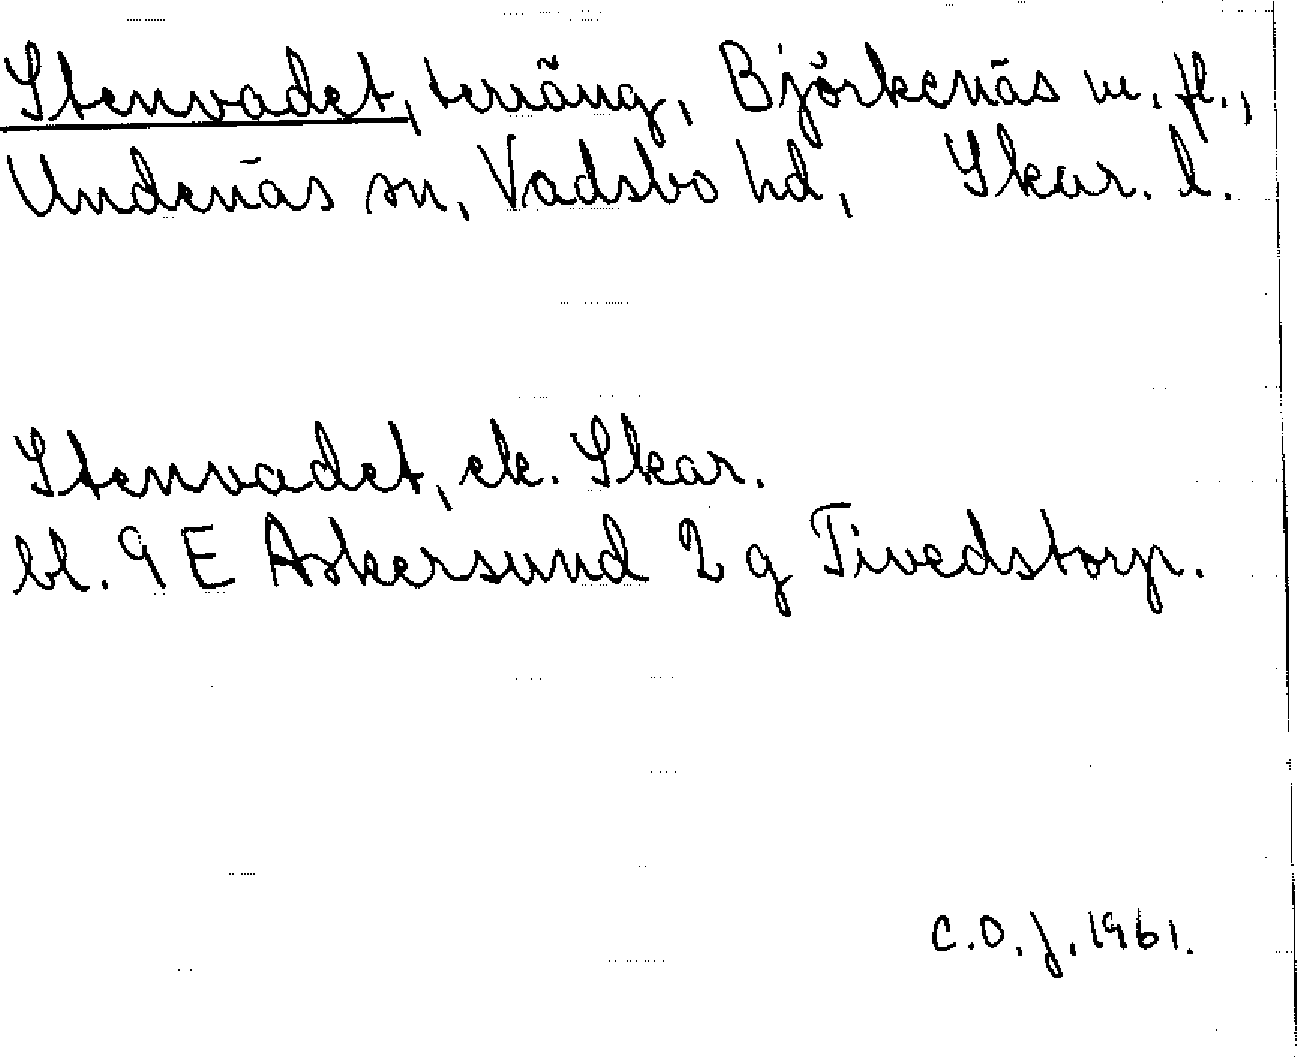 Stenvadet, terräng, Björkenäs m. fl.,
Undenäs sn, Vadsbo hd, Skar. l.
Stenvadet, ek. Skar.
bl. 9 E Askersund 2 g Tivedstorp.
C.O.J. 1961.